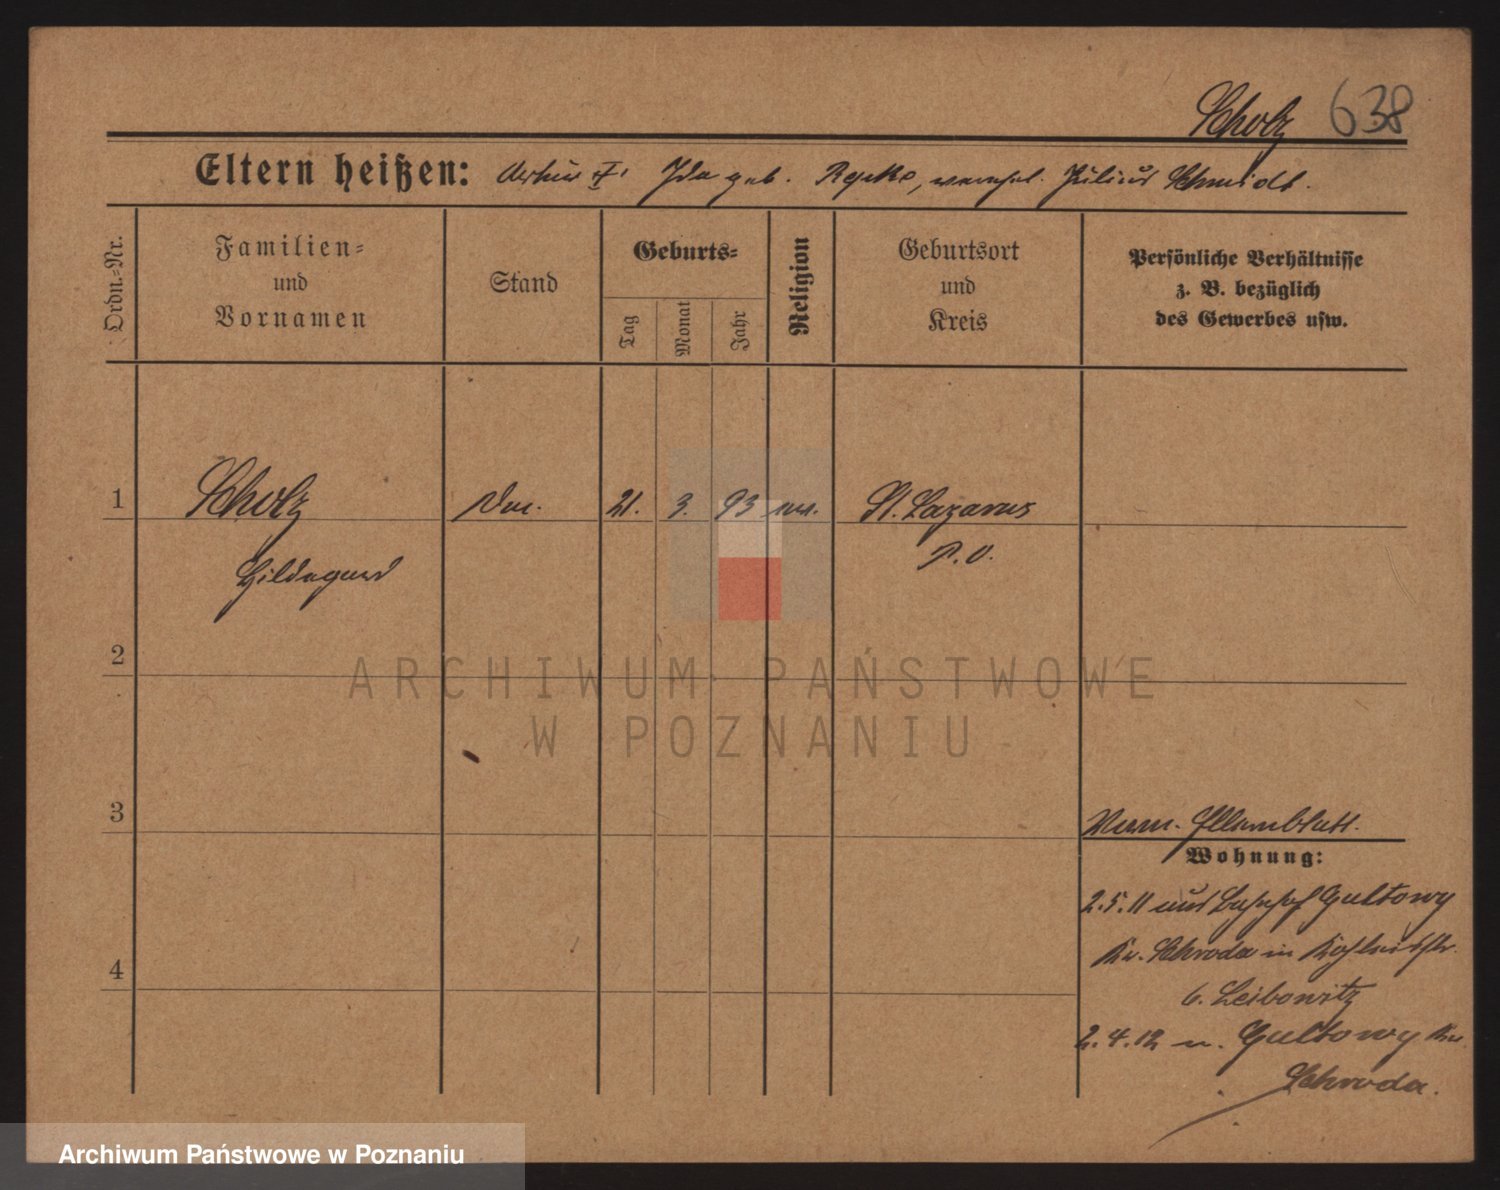 Scholz 638
Eltern heißen: Arthur †, Ida geb. Repke, verehel. Julius Schmidt.
Ordn.-Nr.
Familien-
und
Vornamen
Stand
Geburts-
Tag
Monat
Jahr
Religion
Geburtsort
und
Kreis
Persönliche Verhältnisse
z. B. bezüglich
des Gewerbes usw.
1 Scholz 21. 3. 93 St. Lazarus
Hildegard P. O.
2
ARCHIWUM PAŃSTWOWE
W POZNANIU
3
Verm. Elternblatt.
Wohnung:
2.5.11 aus Bahnhof Gultowy
Kr. Schroda in
6. Leibowitz
4
2.4.12 n. Gultowy Kr.
Schroda.
Archiwum Państwowe w Poznaniu